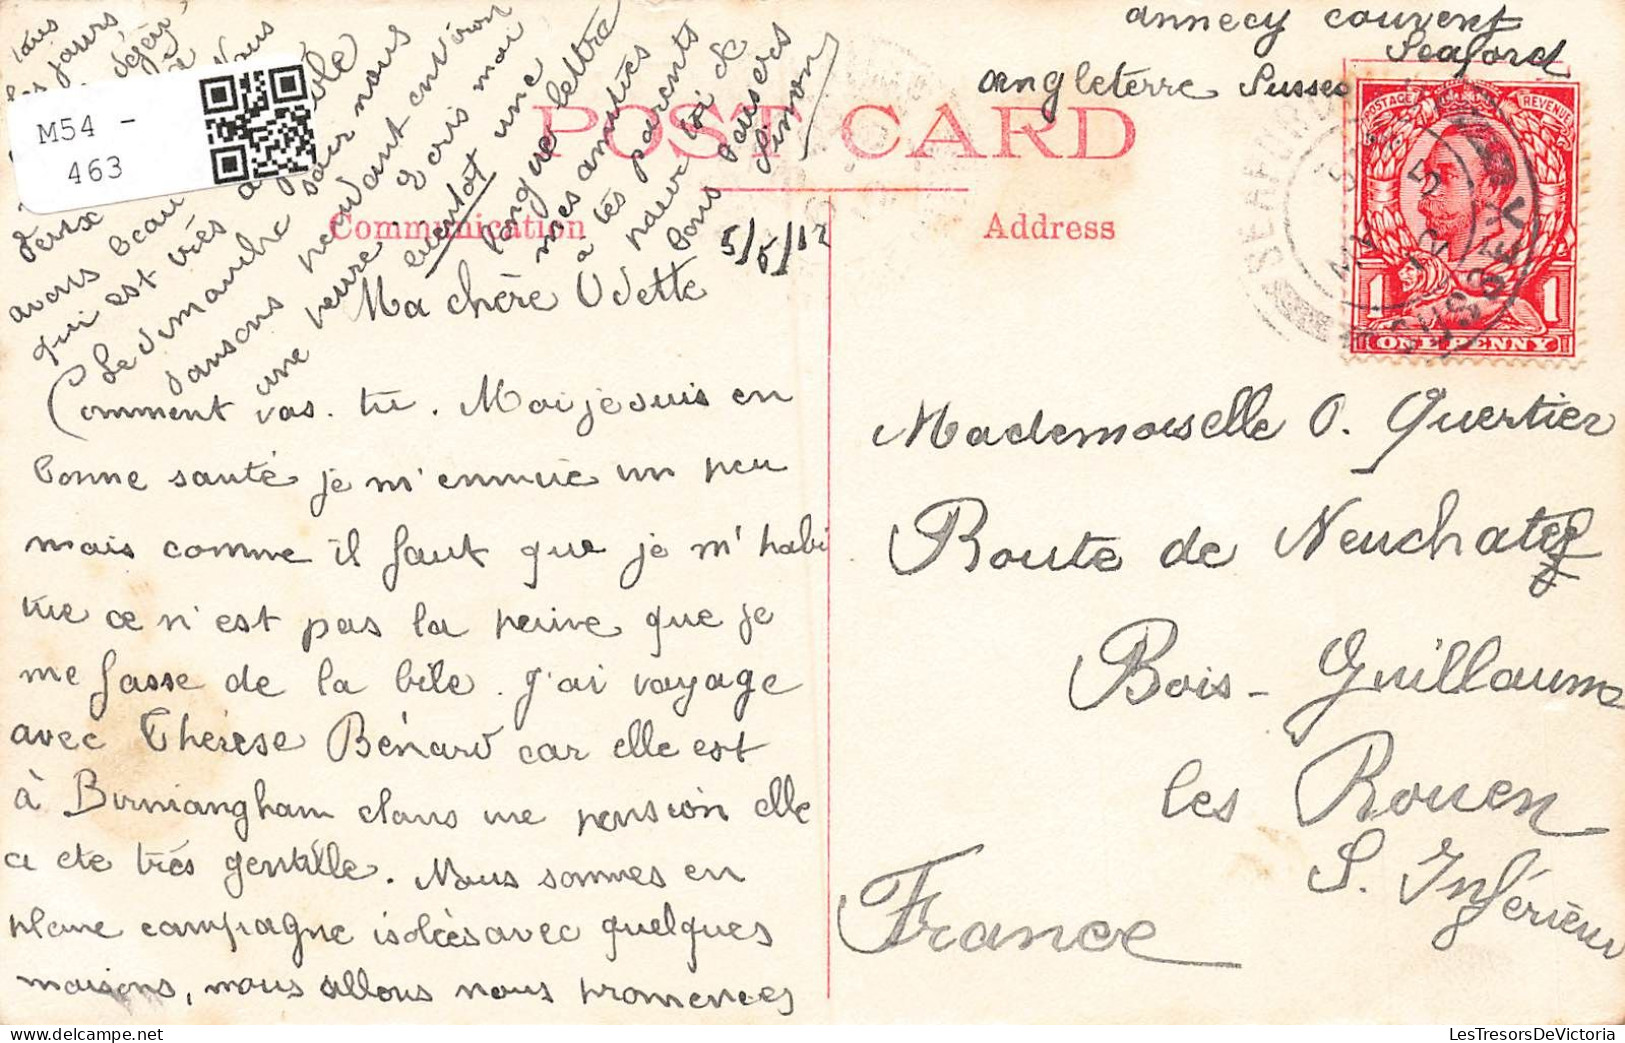 annecy couvent
Seaford
angleterre Sussex
POST CARD
Communication
Address
M54 -
463
POSTAGE
REVENUE
1
1
ONE PENNY
SEAFORD
SUSSEX
MY 5
12
5/5/12
Ma chère Odette
Comment vas. tu. Moi je suis en
bonne santé je m'ennuie un peu
mais comme il faut que je m'habi
tue ce n'est pas la peine que je
me fasse de la bile. J'ai voyage
avec Thérèse Bénard car elle est
à Birmiangham dans une pension elle
a ete très gentille. Nous sommes en
pleine campagne isolées avec quelques
maisons, nous allons nous promenees
tous
les jours
avons beau
qui est très
Le dimanche soir nous
dansons pendant environ
une heure Ecris moi
bientot une
longue lettre
mes amitiés
à tes parents
pour toi de
bons baisers
Simon
Mademoiselle O. Quertier
Route de Neuchatel
Bois-Guillaume
les Rouen
S. Inférieur
France
LesTresorsDeVictoria